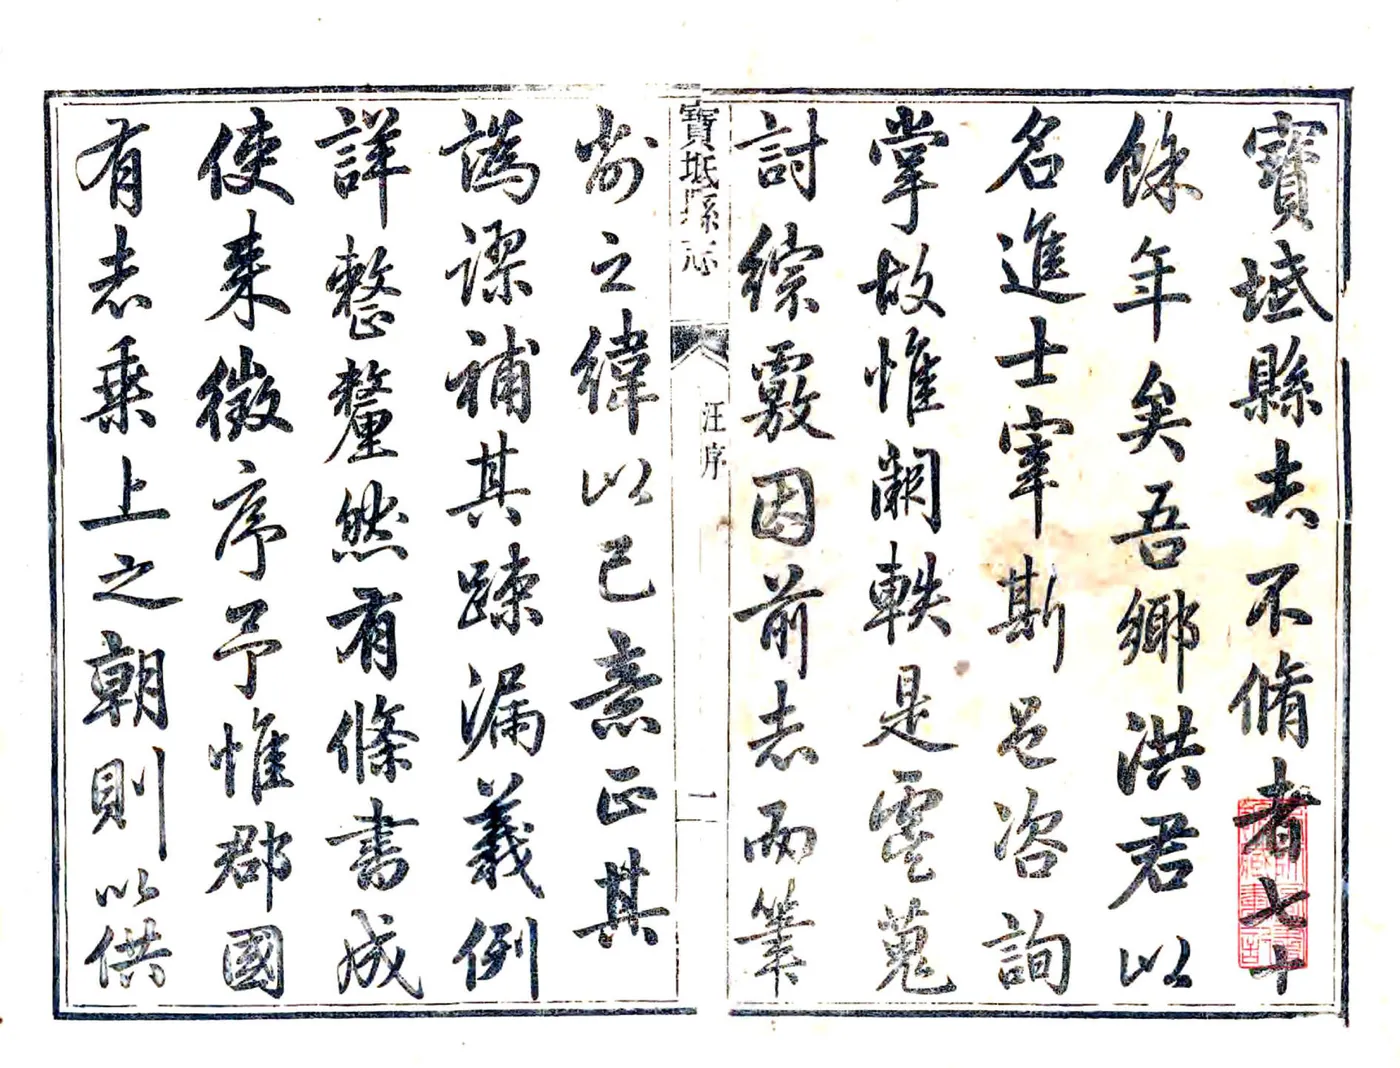 寶坻縣志不脩者七十
餘年矣吾鄉洪君以
名進士宰斯邑咨詢
掌故惟闕軼是虞蒐
討綜覈因前志而筆
削之緯以己意正其
譌謬補其踈漏義例
詳整釐然有條書成
使来徵序予惟郡國
有志乗上之朝則以供
寶坻縣志
汪序
二